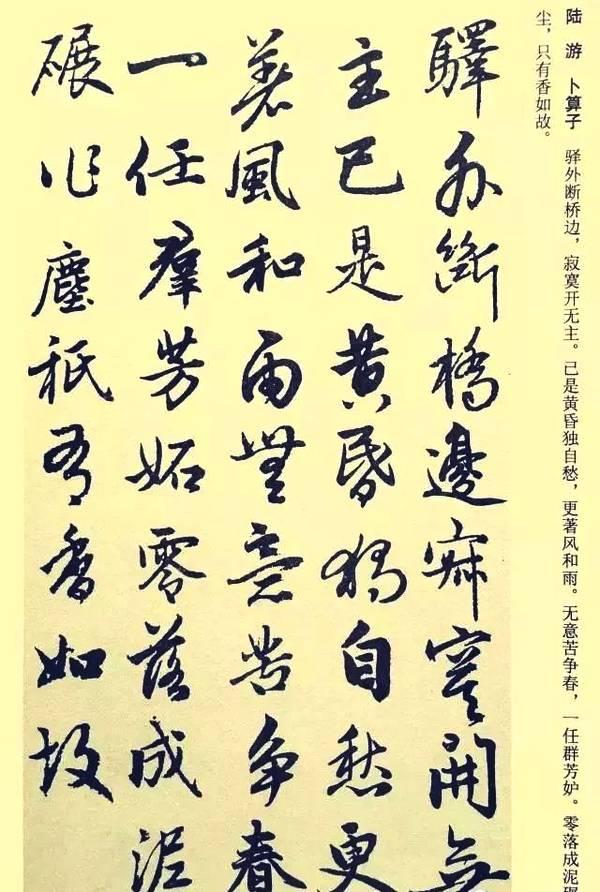 陆 游 卜算子 驿外断桥边，寂寞开无主。已是黄昏独自愁，更著风和雨。无意苦争春，一任群芳妒。零落成泥碾
尘，只有香如故。
驛外斷橋邊寂寞開無
主已是黄昏獨自愁更
著風和雨無意苦争春
一任羣芳妬零落成泥
碾作塵祇有香如故